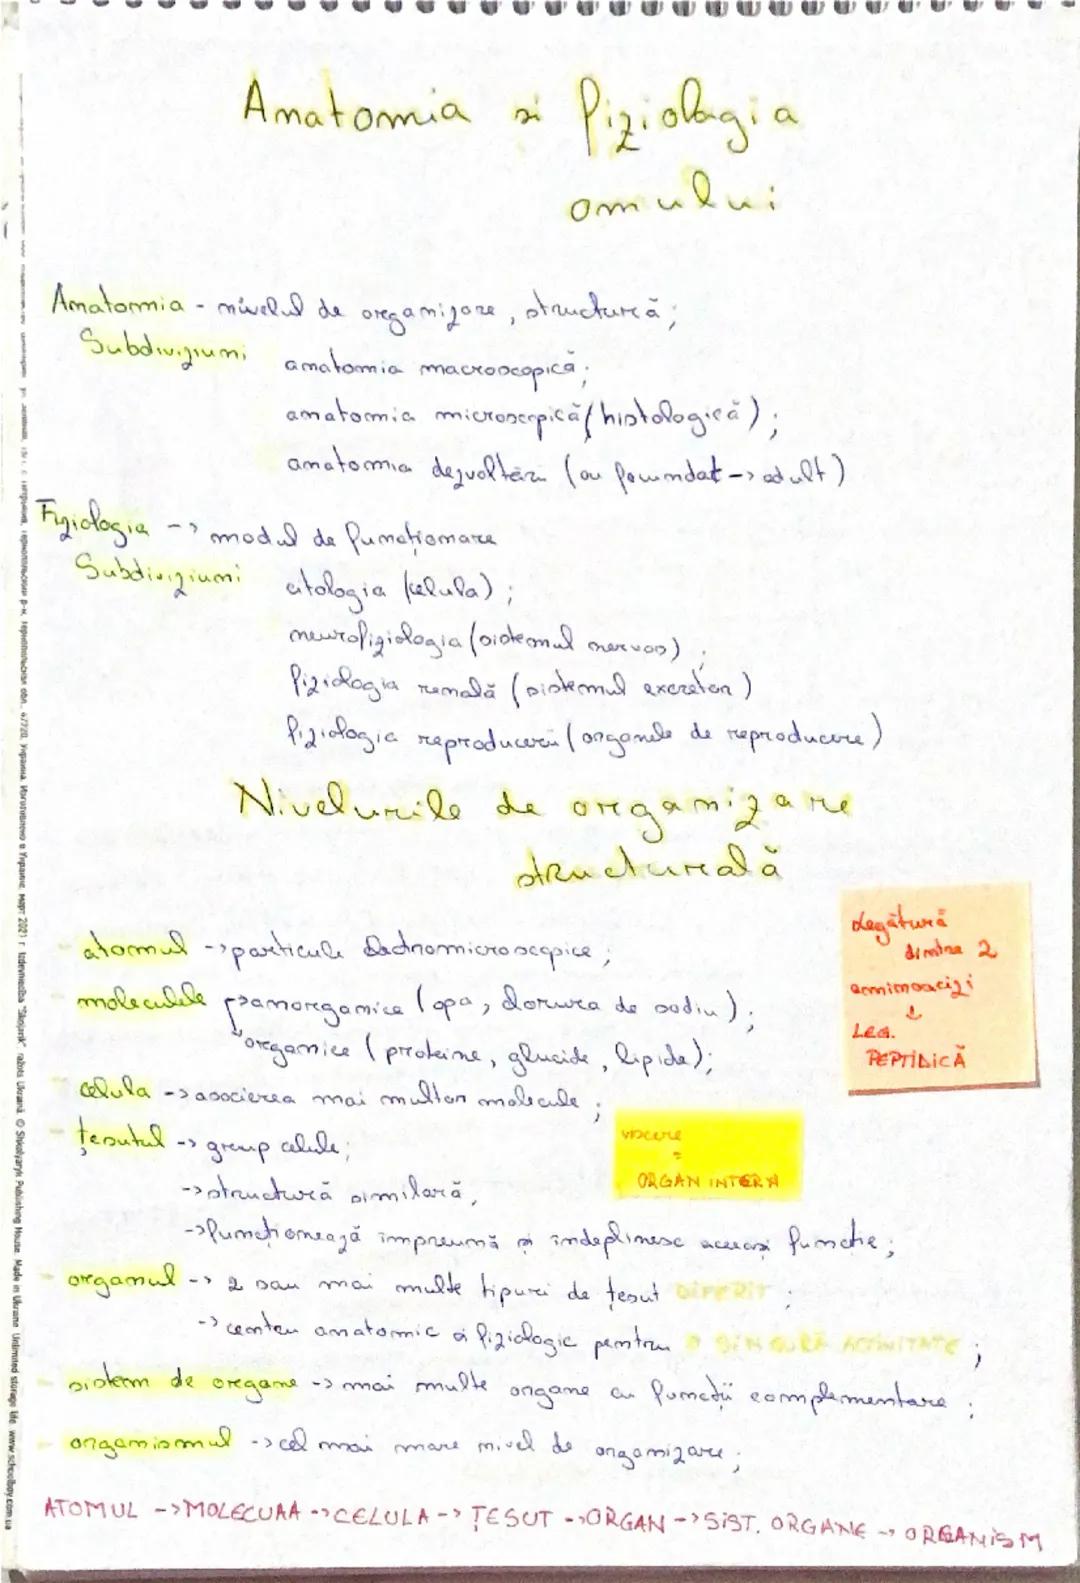 Anatomia si fiziologia
omului
Anatomia - nivelul de organizare, structură;
Subdiviziuni
anatomia macroscopică;
anatomia microscopică (histologică);
anatomia dezvoltării (ou fecundat -> adult)
Fiziologia -> modul de funcționare
Subdiviziuni
citologia (celula);
neurofiziologia (sistemul nervos);
fiziologia renală (sistemul excretor)
fiziologia reproducerii (organele de reproducere)
Nivelurile de organizare
structurală
atomul -> particule electronomicroscopice;
moleculele -> anorganice (apa, clorura de sodiu);
-> organice (proteine, glucide, lipide);
celula -> asocierea mai multor molecule;
țesutul -> grup celule;
-> structură similară,
-> funcționează împreună și îndeplinesc aceeași funcție;
organul -> 2 sau mai multe tipuri de țesut DIFERIT;
-> centru anatomic și fiziologic pentru O SINGURĂ ACTIVITATE;
sistem de organe -> mai multe organe cu funcții complementare;
organismul -> cel mai mare nivel de organizare;
ATOMUL -> MOLECUAA -> CELULA -> ȚESUT -> ORGAN -> SIST. ORGANE -> ORGANISM
Legătură
dintre 2
aminoacizi
↓
LEG.
PEPTIDICĂ
viscere
=
ORGAN INTERN